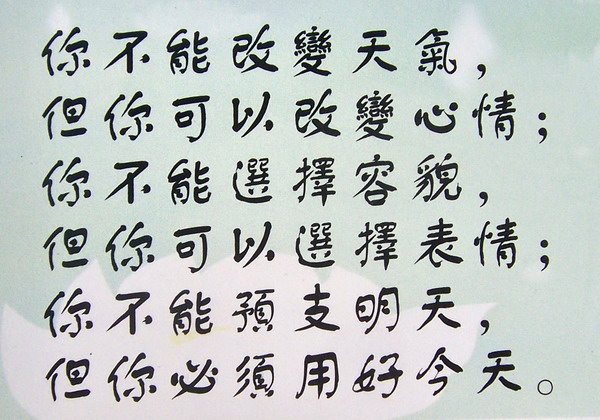 你不能改變天氣，
但你可以改變心情；
你不能選擇容貌，
但你可以選擇表情；
你不能預支明天，
但你必須用好今天。